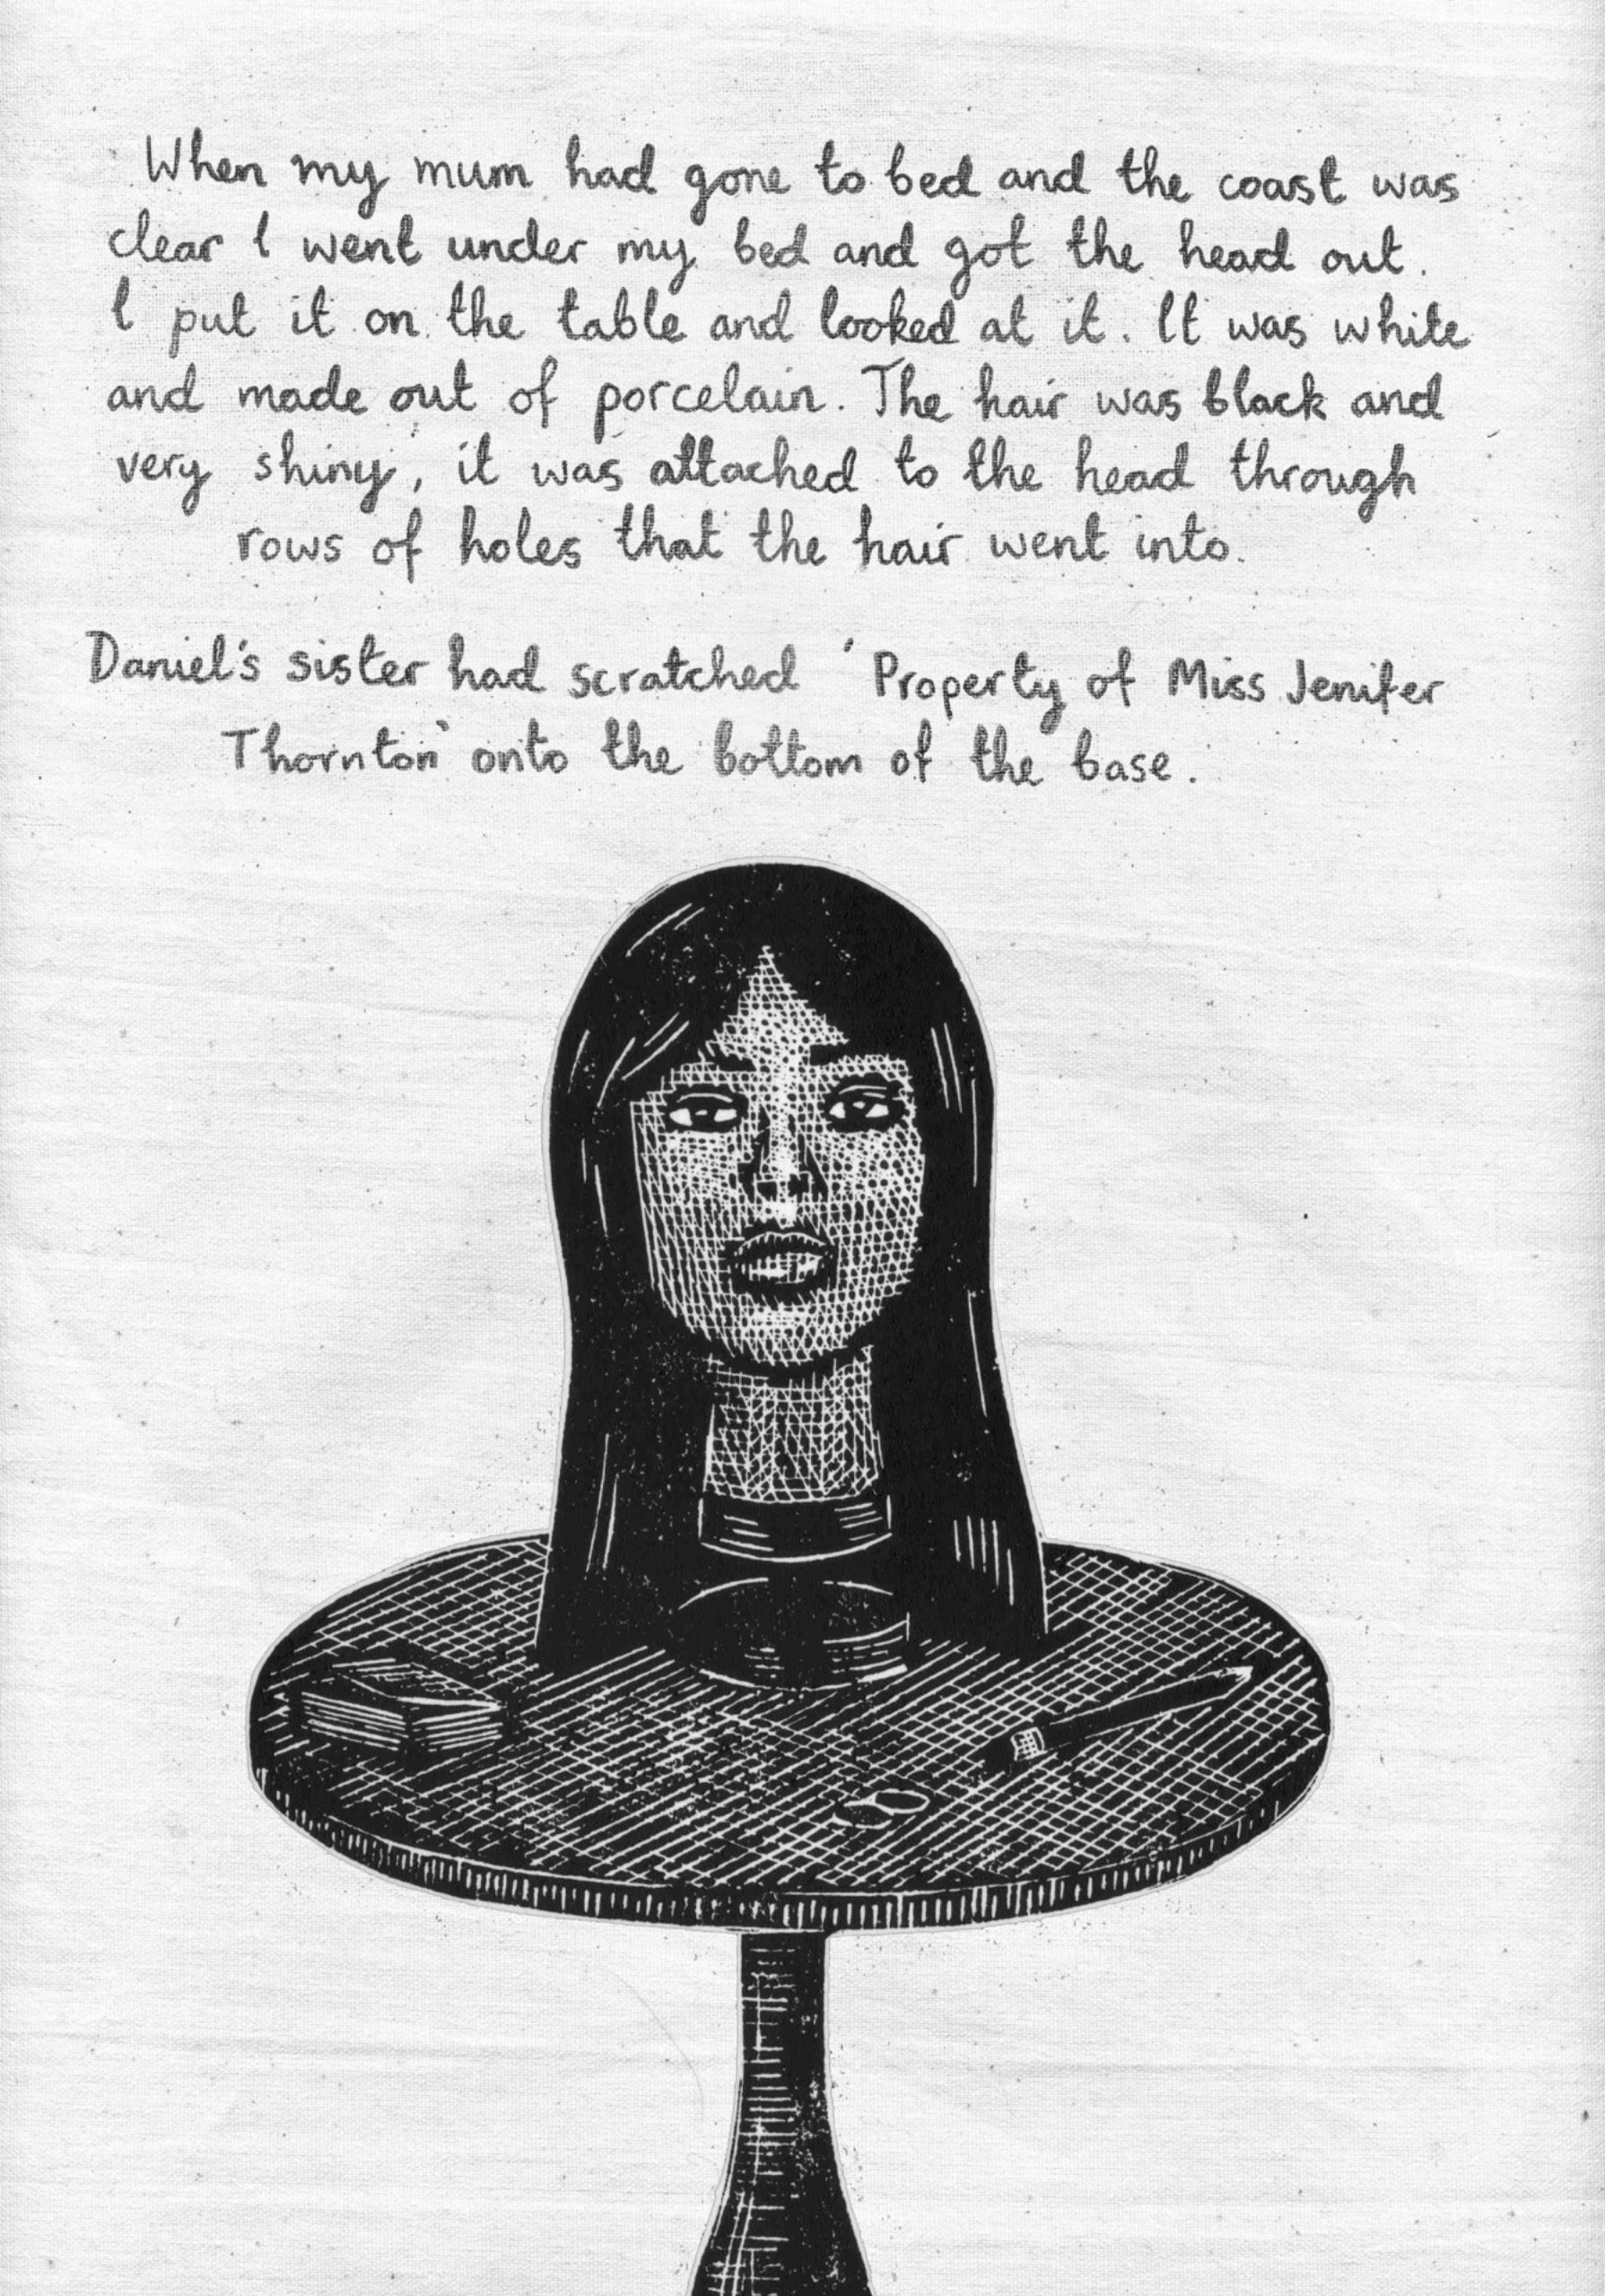 When my mum had gone to bed and the coast was
clear I went under my bed and got the head out.
I put it on the table and looked at it. It was white
and made out of porcelain. The hair was black and
very shiny, it was attached to the head through
rows of holes that the hair went into.
Daniel's sister had scratched 'Property of Miss Jenifer
Thornton' onto the bottom of the base.